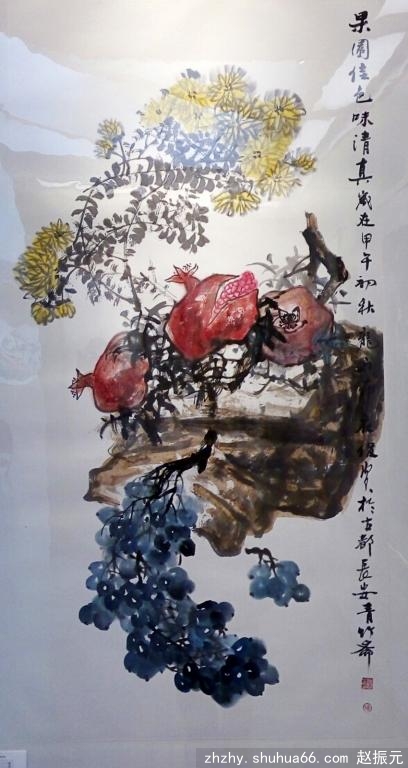 果園佳色味清真歲在甲午初秋 於古都長安青竹齋
zhzhy.shuhua66.com 赵振元